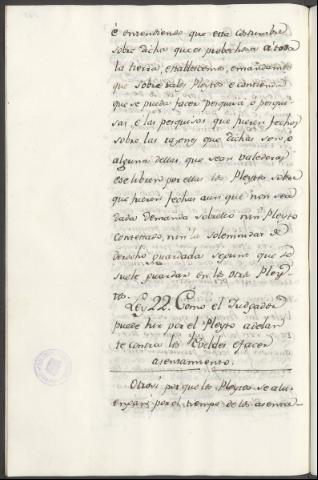 é entendiendo que esta costumbre
sobre dicha que es probechosa a toda
la tierra, establescemos, e mandamos
que sobre tales Pleytos e contiendas
que se pueda facer pesquisa ó pesqui-
sas, é las pesquisas que fueren fechas
sobre las razones que dichas son, ó
alguna dellas, que sean valederas
e se libren por ellas los Pleytos sobre
que fueren fechas aun que non sea
dada demanda sobrello nin Pleyto
contestado, nin la solemnidar de
derecho guardada segunt que se
suele guardar en los otros Pley-
tos.
Ley 22. Como el Judgador
puede hir por el Pleyto adelan-
te contra los Rebeldes e facer
asentamiento.
Otrosi por que los Pleytos se alu-
engan por el tiempo de los asenta-